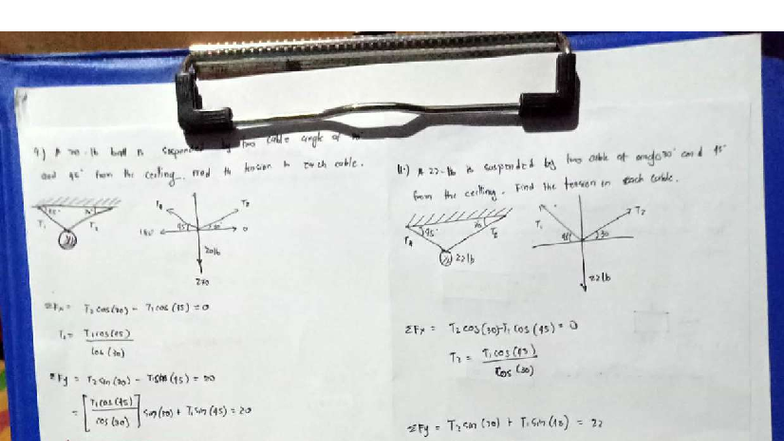 9.) A 20-lb ball is suspended by two cable angle of 30°
and 45° from the ceiling. Find the tension in each cable.
45° 30°
T1 T2
T1 T2
180° 45° 30 0
20lb
270
ΣFx = T2 cos(30) - T1 cos(45) = 0
T1 cos(45)
cos(30)
ΣFy = T2 sin(30) - T1 sin(45) = 20
= [T1 cos(45) / cos(30)] sin(30) + T1 sin(45) = 20
A 22-lb is suspended by two cable at angle 30° and 45°
from the ceiling. Find the tension in each cable.
45° 30
T2
22lb
T1 T2
45° 30
22lb
ΣFx = T2 cos(30) - T1 cos(45) = 0
T2 = T1 cos(45)
cos(30)
ΣFy = T2 sin(30) + T1 sin(45) = 22